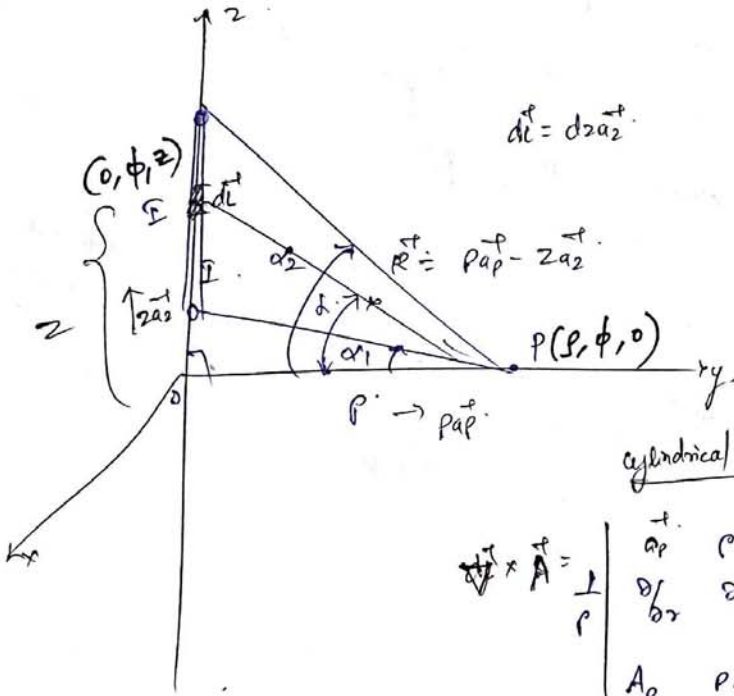 z
dl⃗ = dz a⃗z
(0, ϕ, z)
I
dl⃗
α2
R⃗ = ρa⃗ρ - za⃗z
I
z
↑za⃗z
α
α1
P(ρ, ϕ, 0)
y
0
ρ → ρa⃗ρ
x
cylindrical
∇⃗ × A⃗ = 1/ρ
a⃗ρ ρ
∂/∂r ∂
Aρ ρ